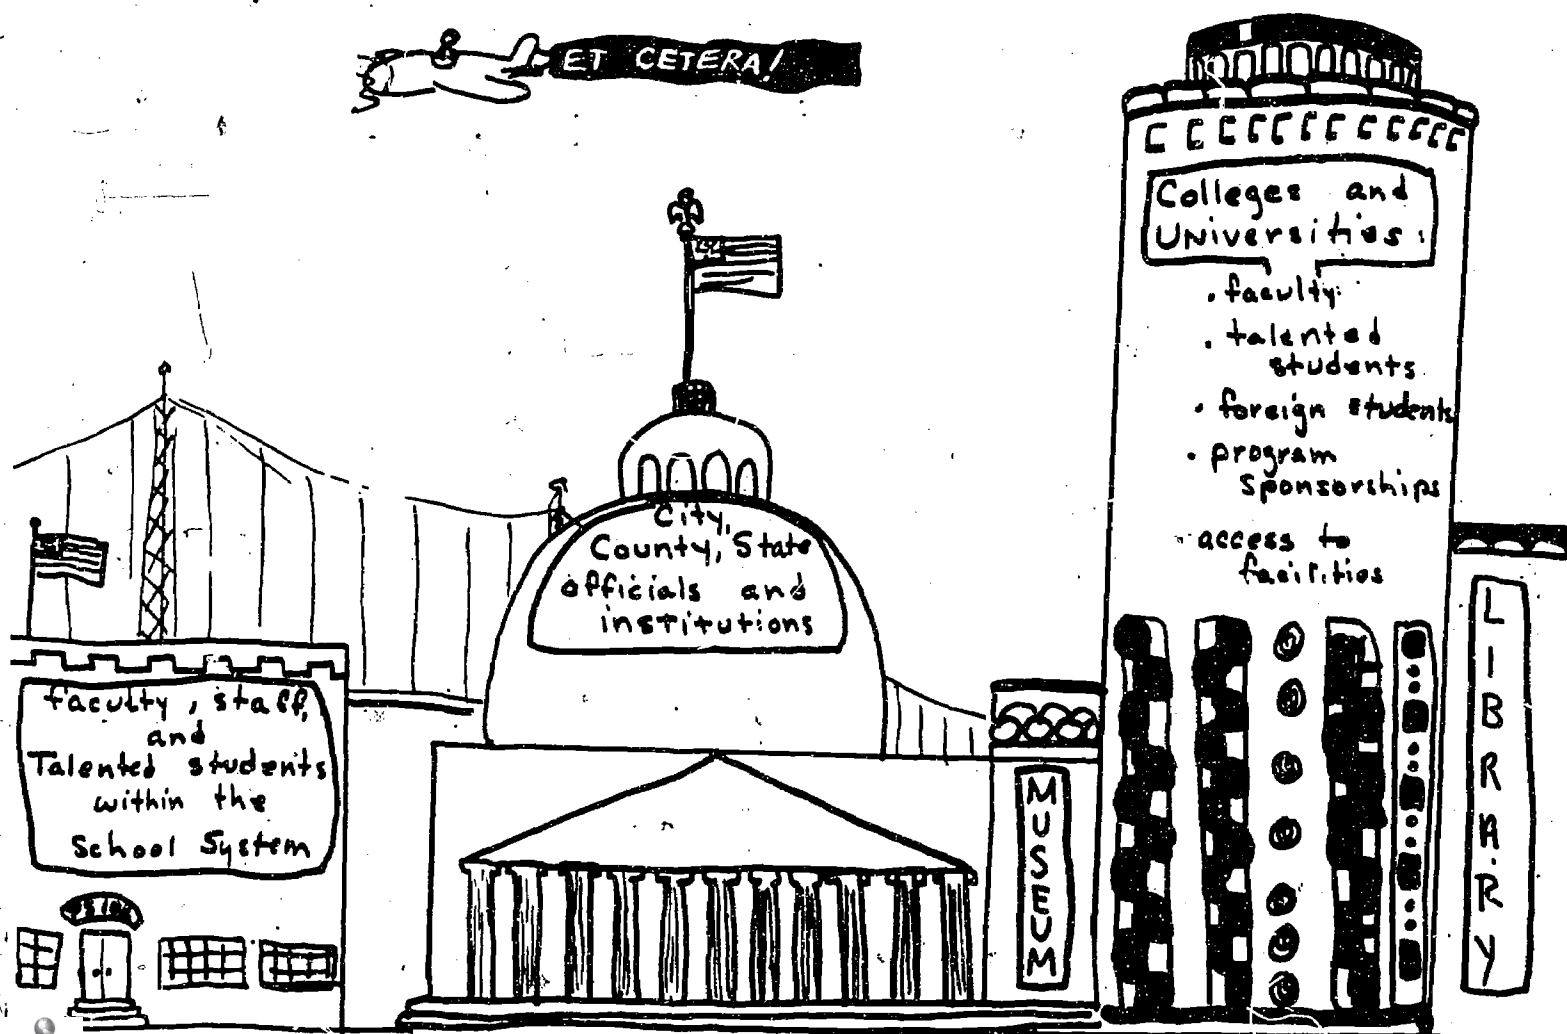 ET CETERA!
Colleges and
UNiversities:
• faculty
• talented
students
• foreign students
• program
sponsorships
• access to
facilities
City,
County, State
officials and
institutions
faculty, staff,
and
Talented students
within the
School System
MUSEUM
LIBRARY